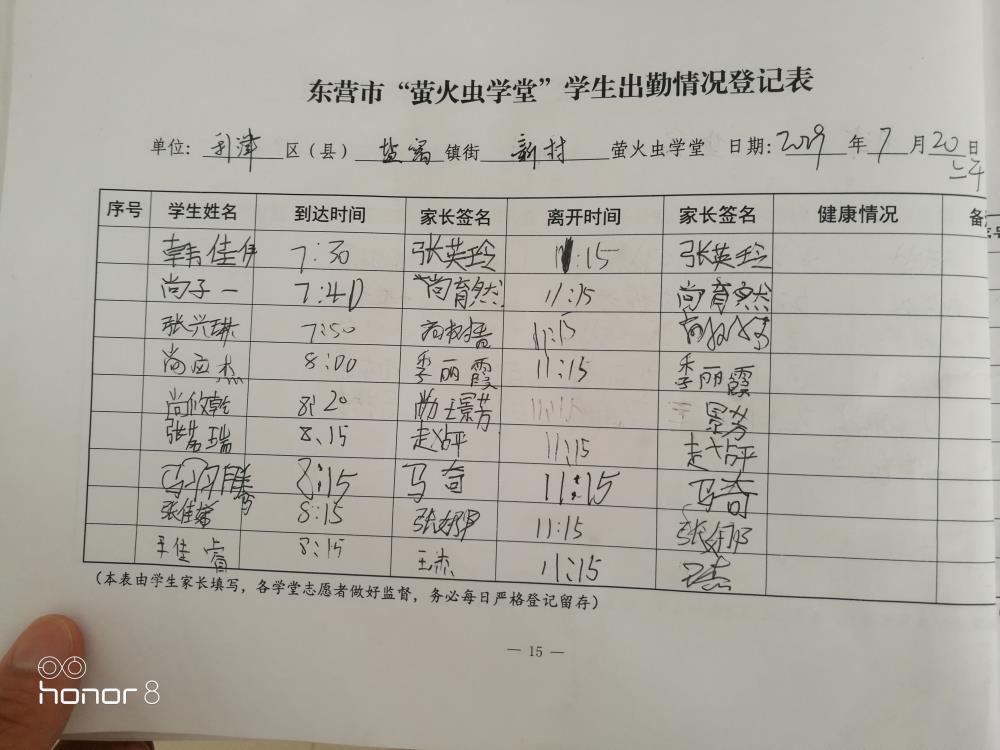 东营市“萤火虫学堂”学生出勤情况登记表
单位: 利津 区(县) 盐窝 镇街 新村 萤火虫学堂 日期: 2019 年 7 月 20 日
上午
序号 学生姓名 到达时间 家长签名 离开时间 家长签名 健康情况 备
韩佳伊 7:30 张英玲 11:15 张英玲
尚子一 7:40 尚育然 11:15 尚育然
张兴琳 7:50 11:15
尚应杰 8:00 季丽霞 11:15 季丽霞
8:20 景芳 11:15 景芳
张若瑞 8:15 11:15
8:15 马奇 11:15 马奇
张佳 8:15 11:15
王佳睿 8:15 王杰 11:15 王杰
(本表由学生家长填写，各学堂志愿者做好监督，务必每日严格登记留存)
— 15 —
honor 8